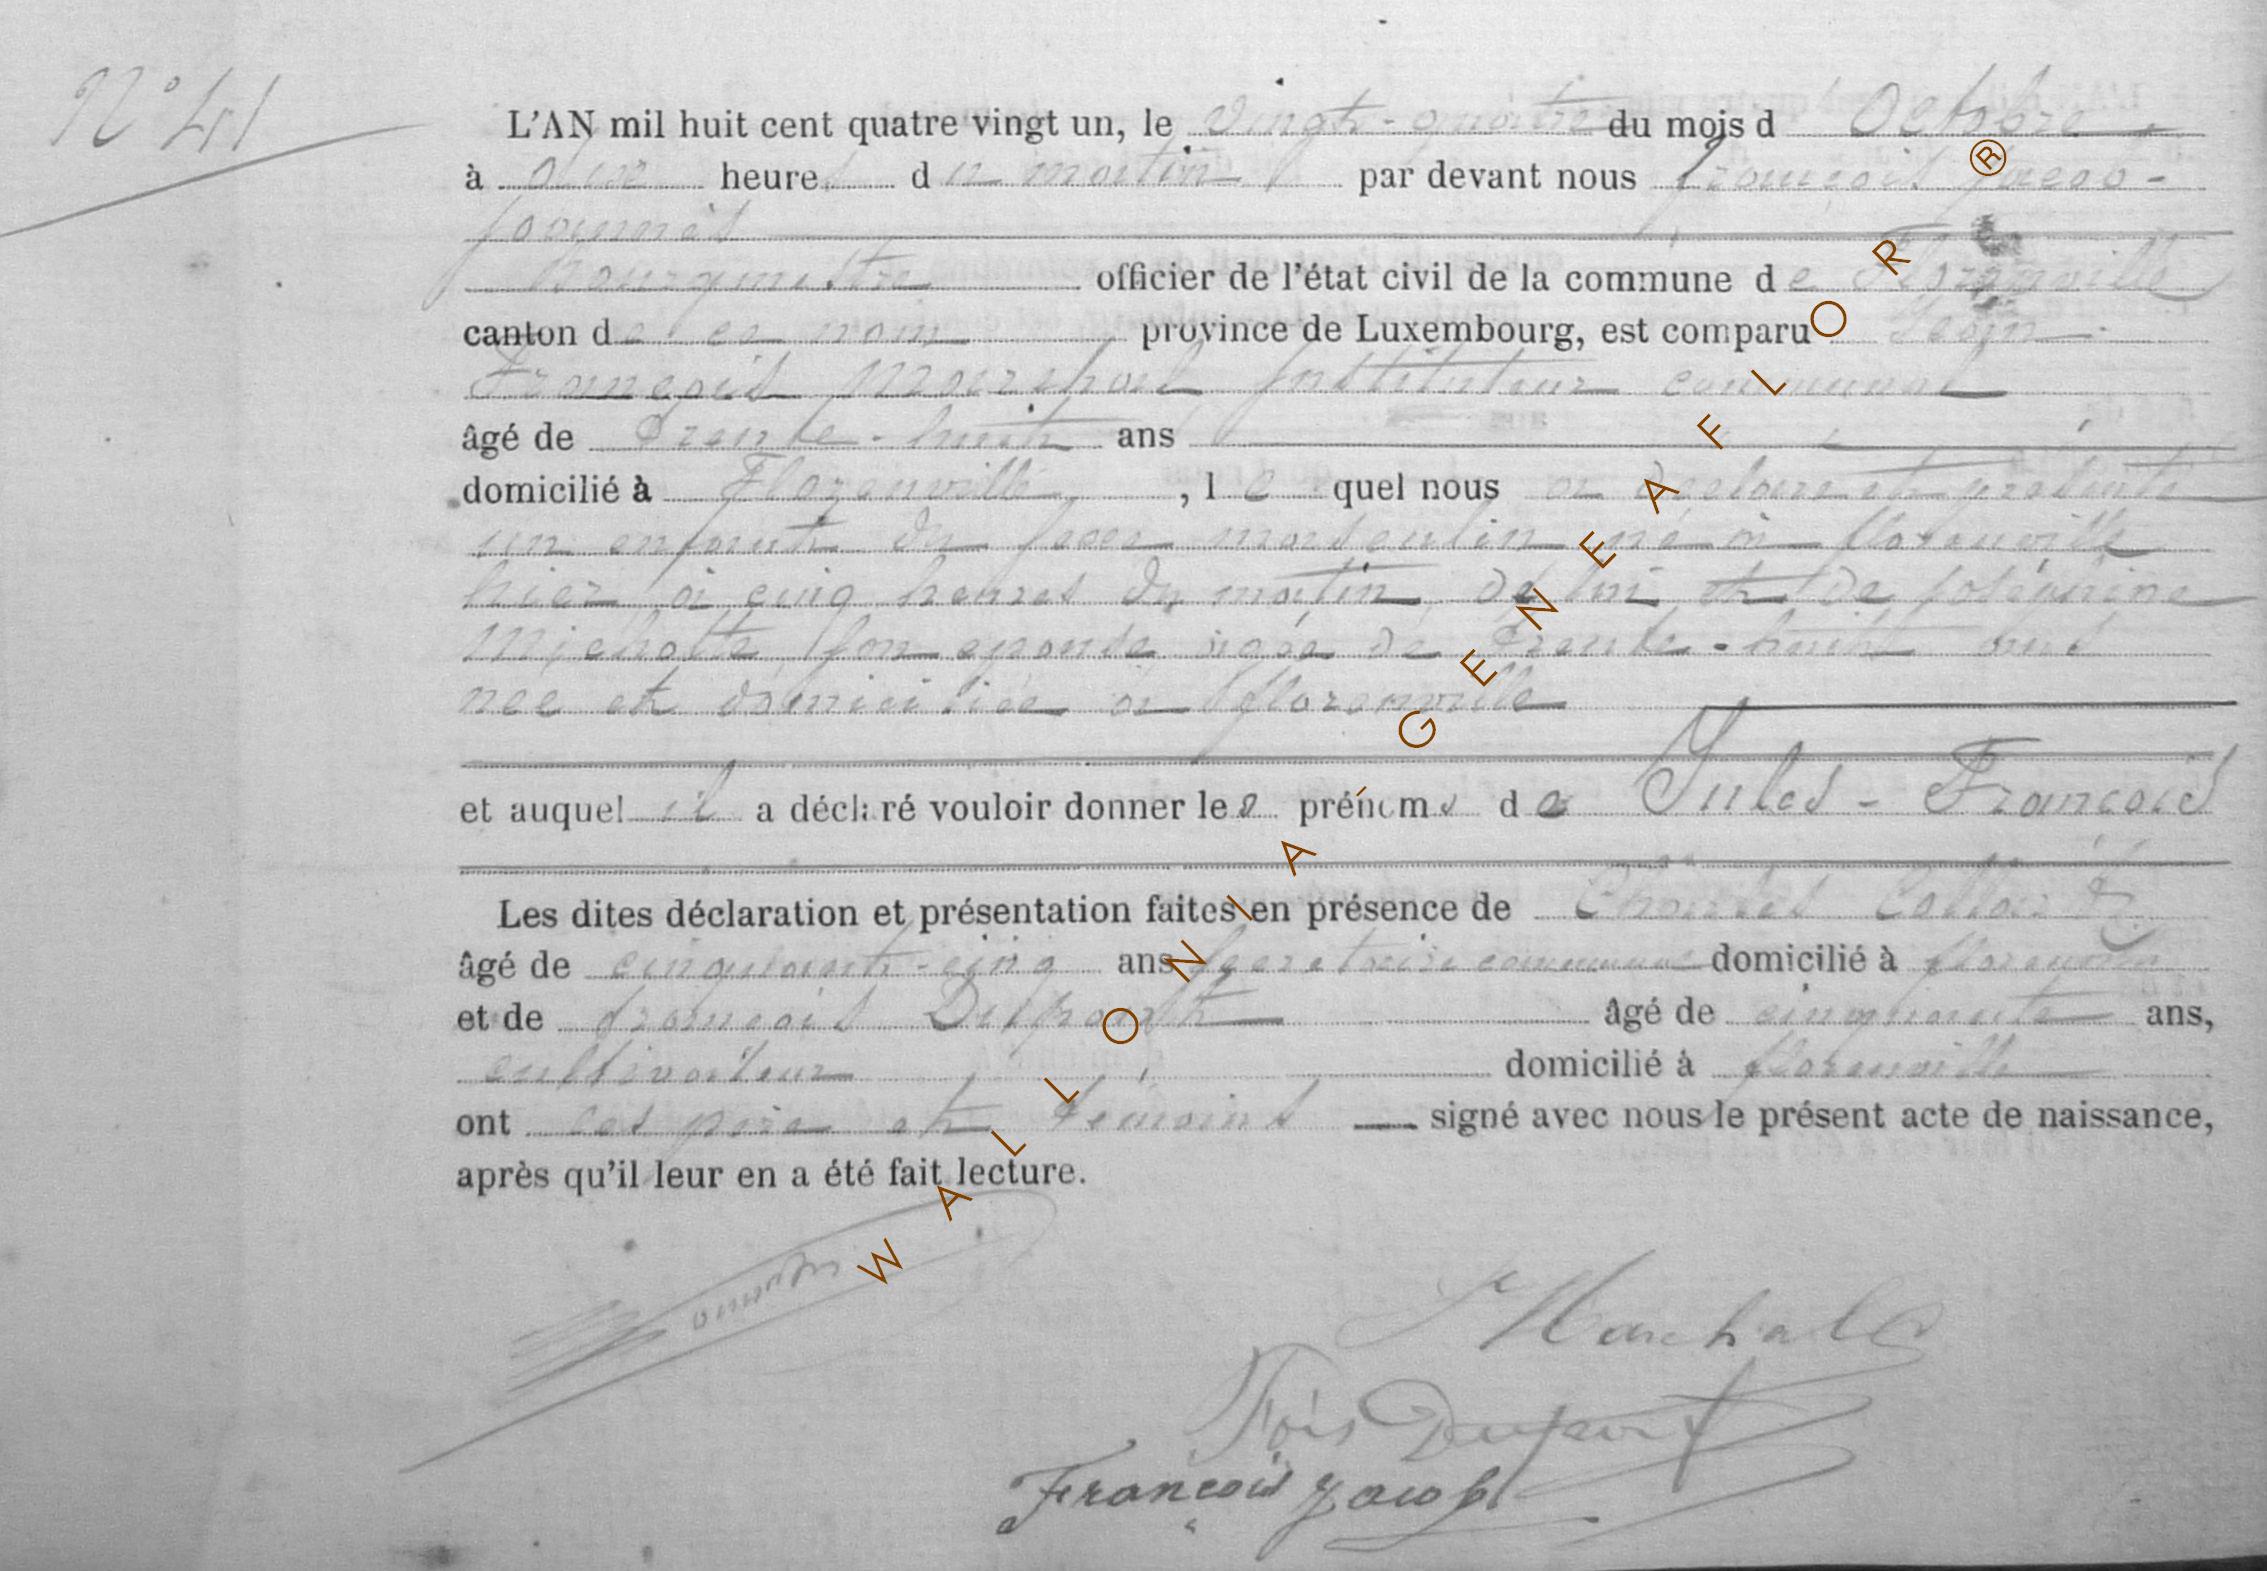 N° 41
L'AN mil huit cent quatre vingt un, le vingt-quatre du mois d Octobre
à onze heures du matin par devant nous françois Jacob-
Jaquemès
bourgmestre officier de l'état civil de la commune de Florenville
canton de ce nom province de Luxembourg, est comparu Jean
François Marchal Instituteur communal
âgé de Trente-huit ans
domicilié à Florenville, lequel nous a déclaré et présenté
un enfant du sexe masculin né à florenville
hier à cinq heures du matin, de lui et de joséphine
Michotte son epouse agée de Trente-huit ans
née et domiciliée à florenville
et auquel il a déclaré vouloir donner les prénoms de Jules-François
Les dites déclaration et présentation faites en présence de Charles
âgé de cinquante-cinq ans secretaire communal domicilié à florenville
et de françois Dupont âgé de cinquante ans,
cultivateur domicilié à florenville
ont les père et témoins signé avec nous le présent acte de naissance,
après qu'il leur en a été fait lecture.
Marchal
Fois Dupont
François Jacob
WALLONIA GENEAFLOR ®